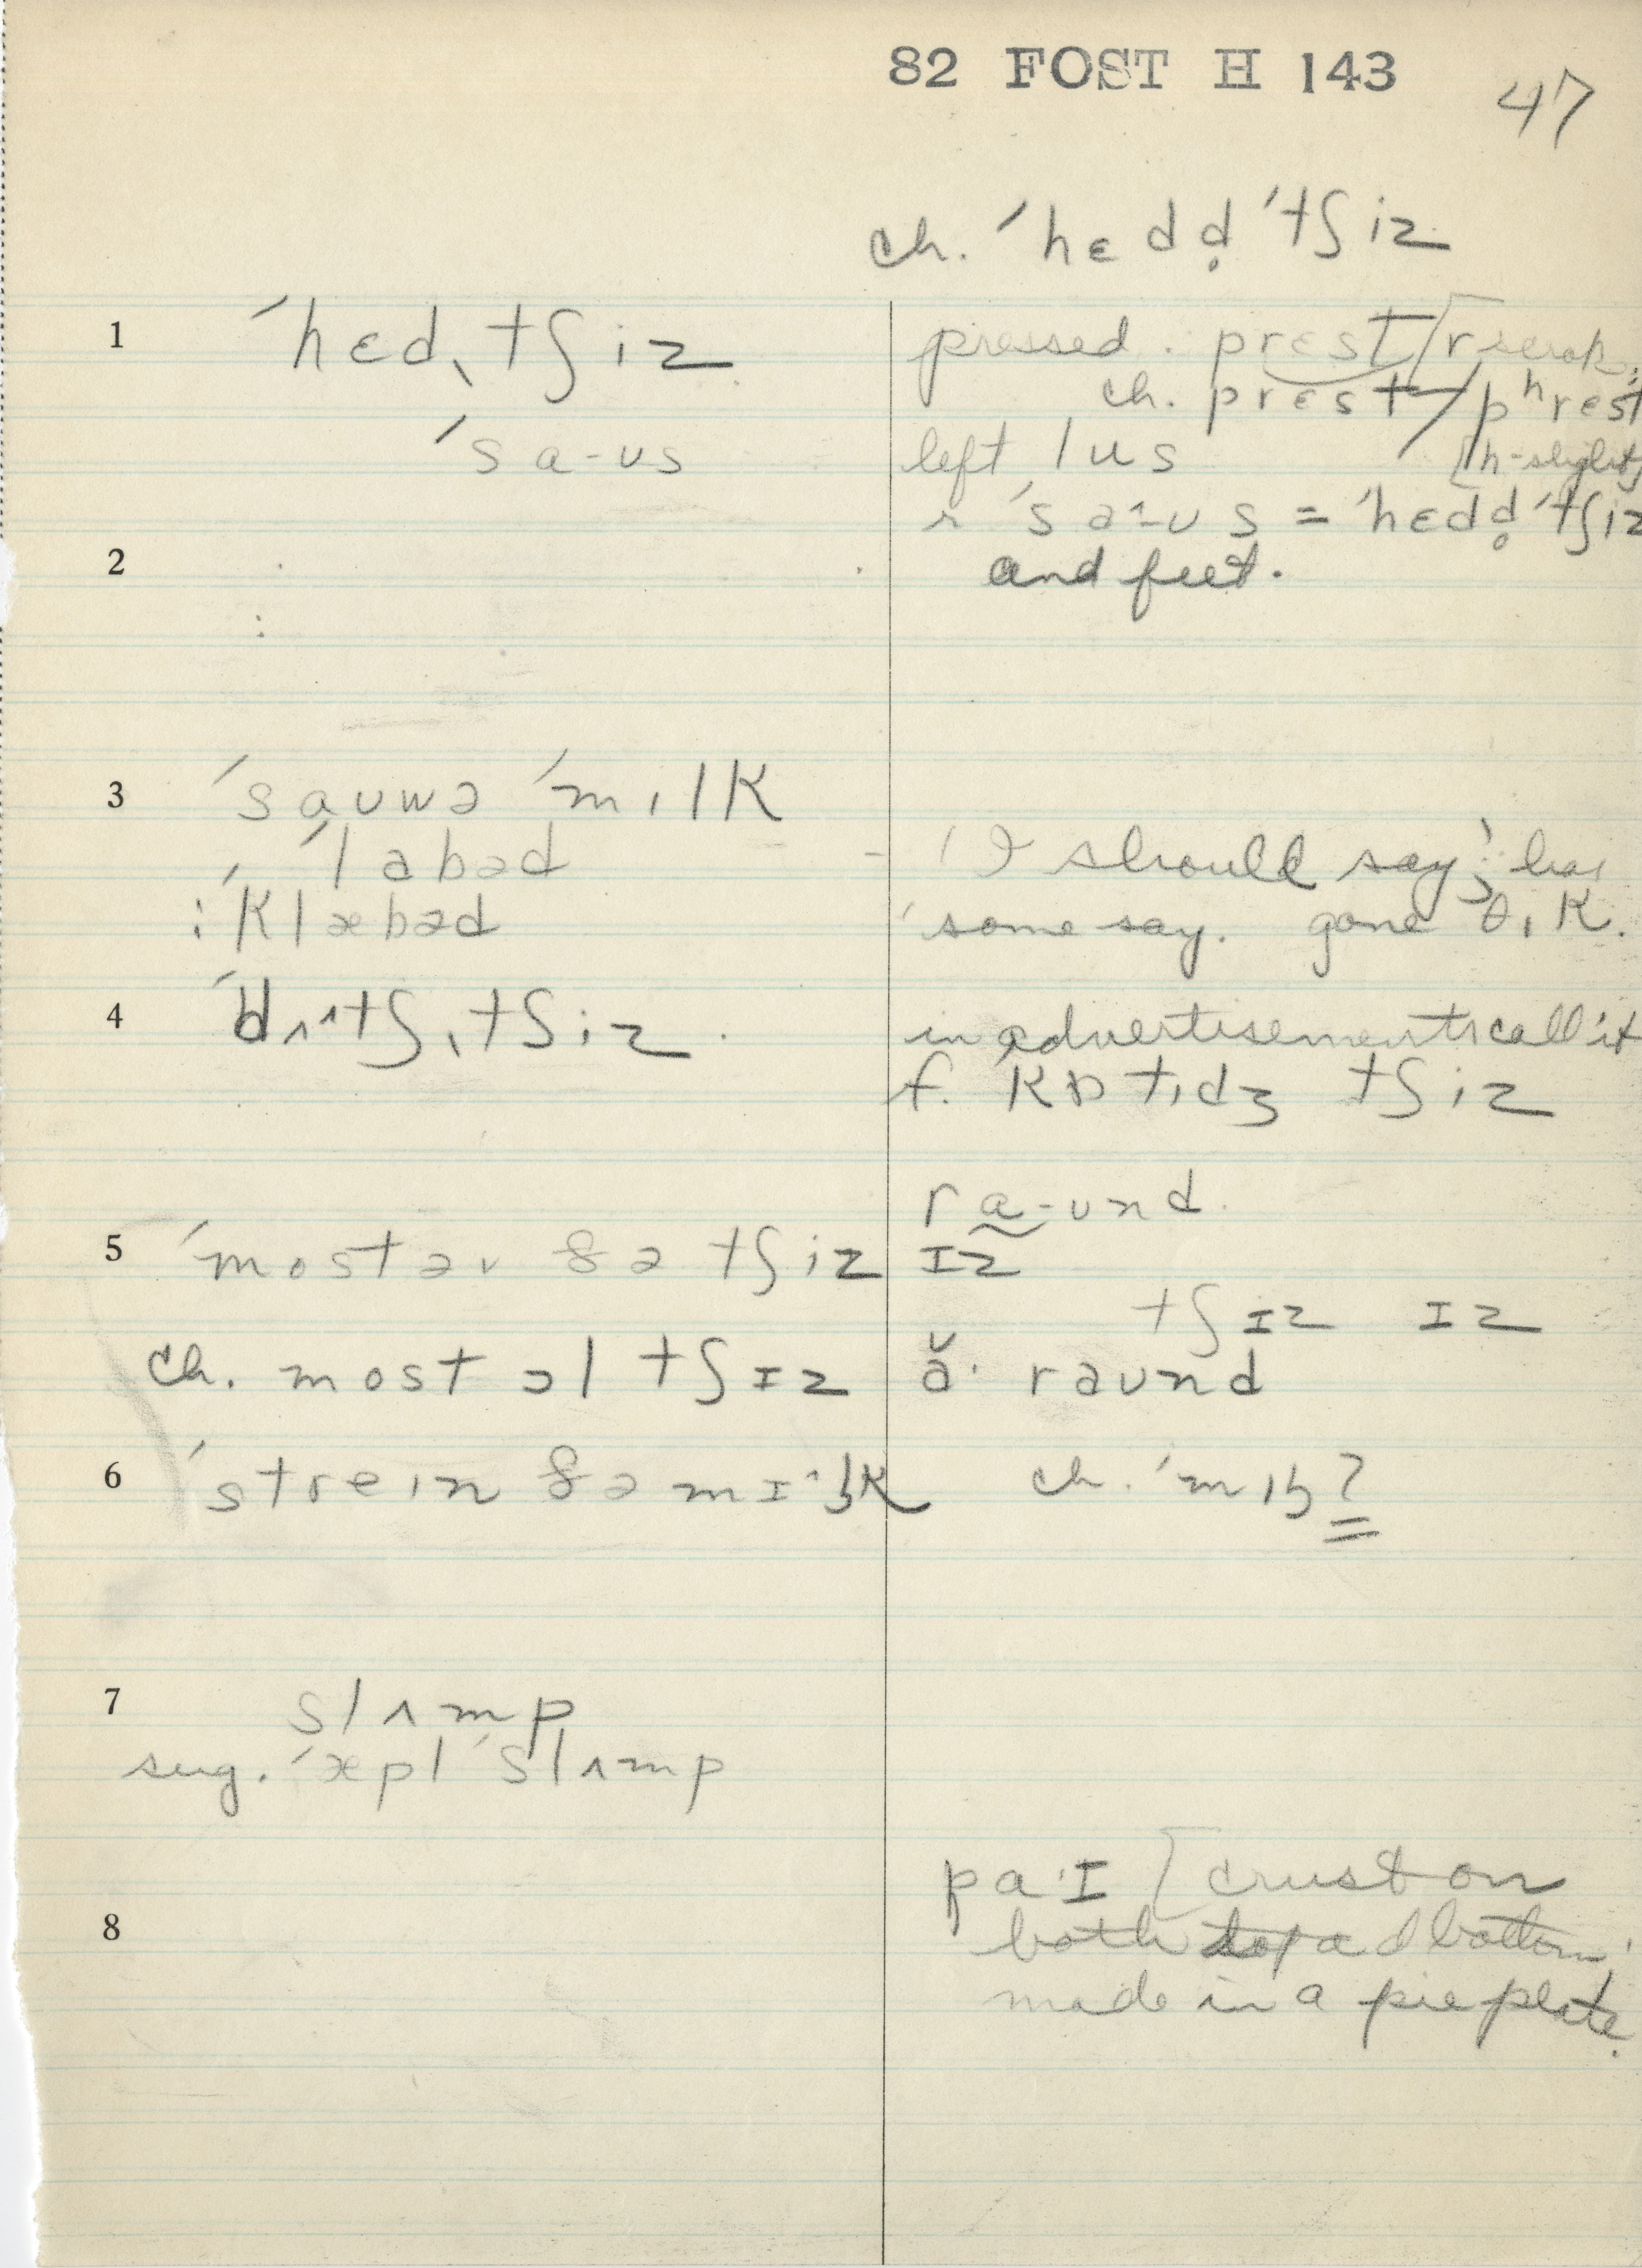 82 FOST H 143
47
ch. ˈhɛd d̥ ˈtʃiz
1 ˈhɛdˌtʃiz
pressed. prɛst [r
ch. prɛst / pʰrɛst
ˈsa-ʊs
left / us [h-slight]
ˈsa^-ʊs = ˈhɛdd̥ˈtʃiz
2
and feet.
3 ˈsaʊwə ˈmılk
ˈlabəd
'I should say';
: ˈklæbəd
'some say. gone θık.
4 ˈdʌ^tʃˌtʃiz.
in advertisements call it
f. kɒtıdʒ tʃiz
ra-ʊnd.
5 ˈmost əv ðə tʃiz ɪz
tʃɪz ɪz
ch. most əl tʃɪz ă· raʊnd
6 ˈstreın ðə mɪ^lk ch. ˈmıɫ?
7 slʌmp
sug. ˈæpl ˈslʌmp
pa·ɪ [crust on
8 both top ad bottom;
made in a pie plate.